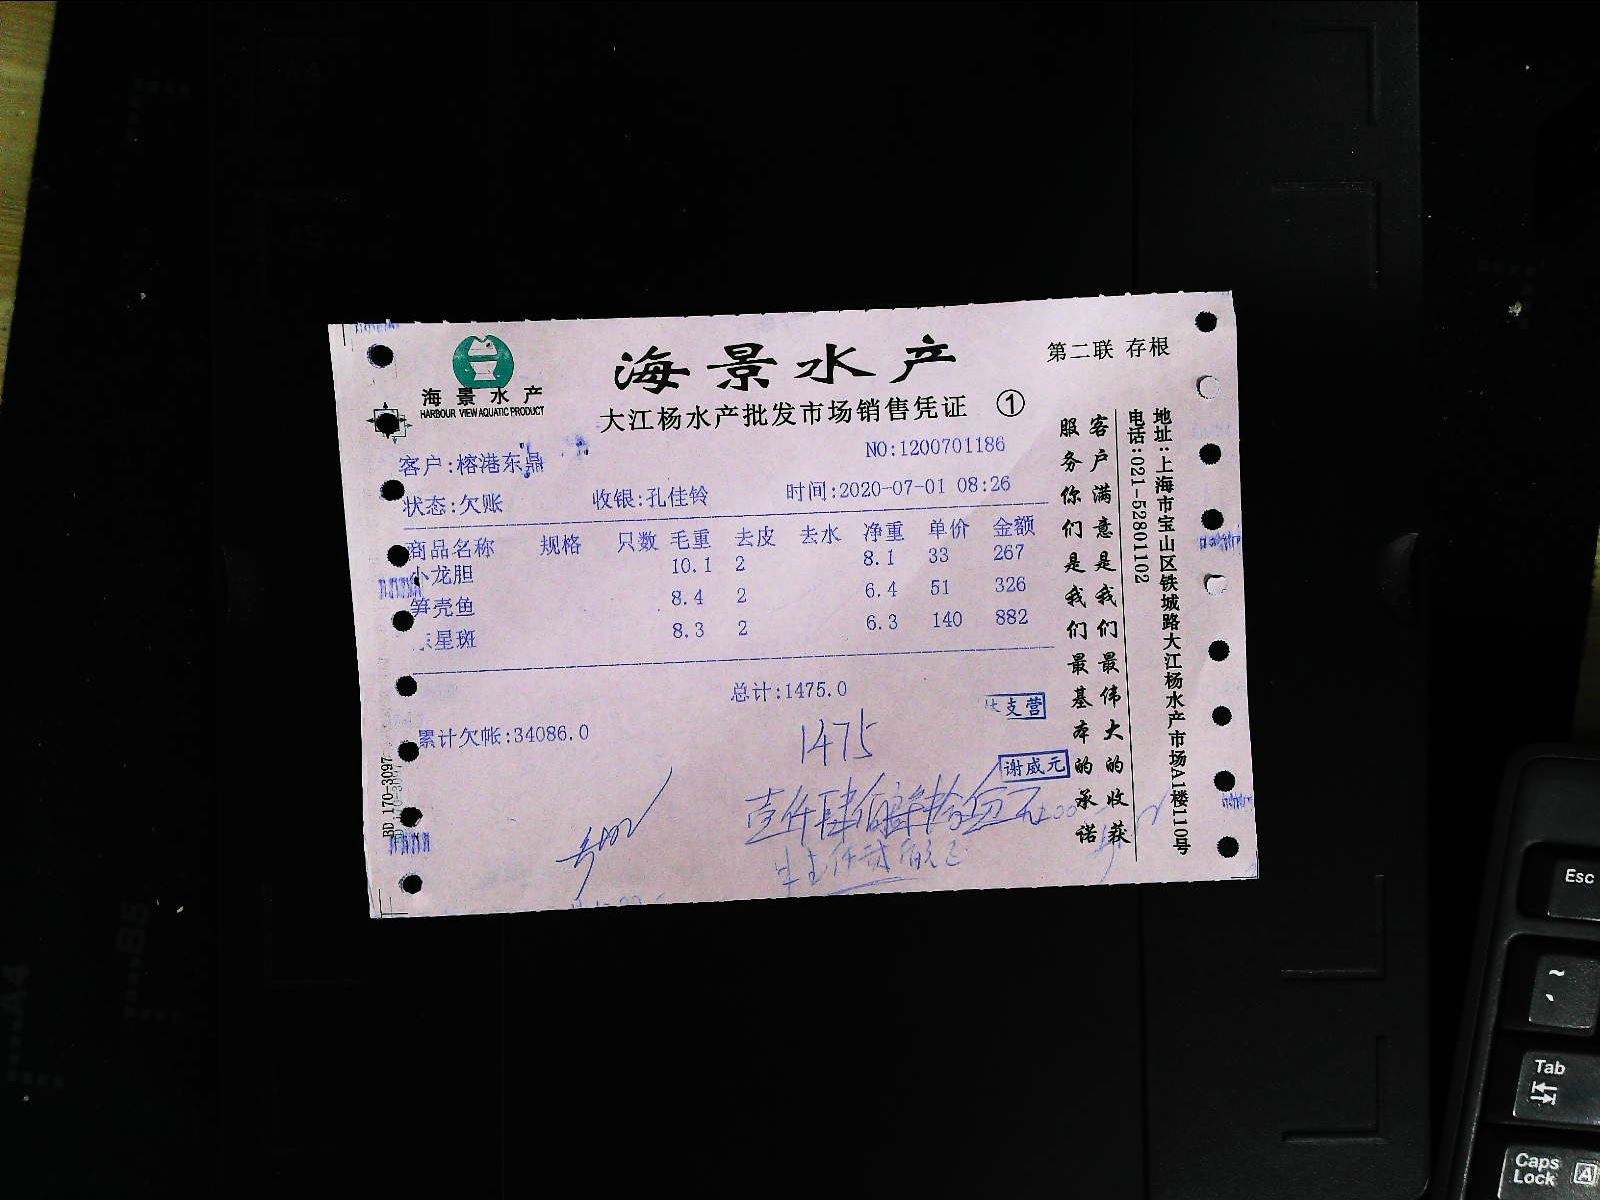 海景水产
HARBOUR VIEW AQUATIC PRODUCT
海景水产
大江杨水产批发市场销售凭证 ①
第二联 存根
NO:1200701186
客户:榕港东鼎
状态:欠账 收银:孔佳铃 时间:2020-07-01 08:26
商品名称 规格 只数 毛重 去皮 去水 净重 单价 金额
小龙胆 10.1 2 8.1 33 267
笋壳鱼 8.4 2 6.4 51 326
星斑 8.3 2 6.3 140 882
总计:1475.0
支营
累计欠帐:34086.0
1475
谢威元
壹仟肆佰柒拾伍元
客户满意是我们最伟大的收获
服务你们是我们最基本的承诺
地址:上海市宝山区铁城路大江杨水产市场A1楼110号
电话:021-52801102
BD 170-3097
A4
B5
Esc
~
Tab
Caps Lock
A